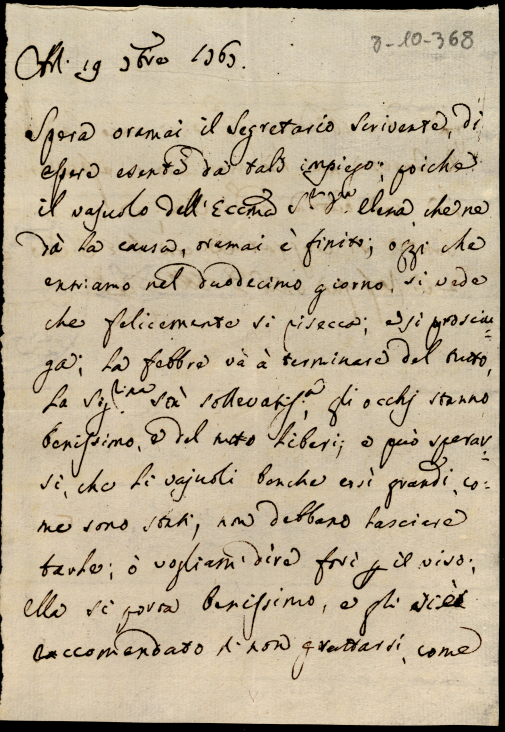 8-10-368
19 9bre 1763.
Spera oramai il Segretario scrivente, di
essere esente da tale impiego; poichè
il vajuolo dell'Eccma Sigra Elena, che ne
dà la causa, oramai è finito; oggi che
entriamo nel duodecimo giorno, si vede
che felicemente si risecca; e si prosciu=
ga; la febbre và à terminare del tutto,
La Sigrina stà sollevatissa, gli occhj stanno
benissimo, e del tutto liberi; e può sperar=
si, che li vajuoli benche così grandi, co=
me sono stati, non debbano lasciare
tarle; ò vogliam dire fori p il viso;
Ella si porta benissimo, e gli si è
raccomandato di non grattarsi, come